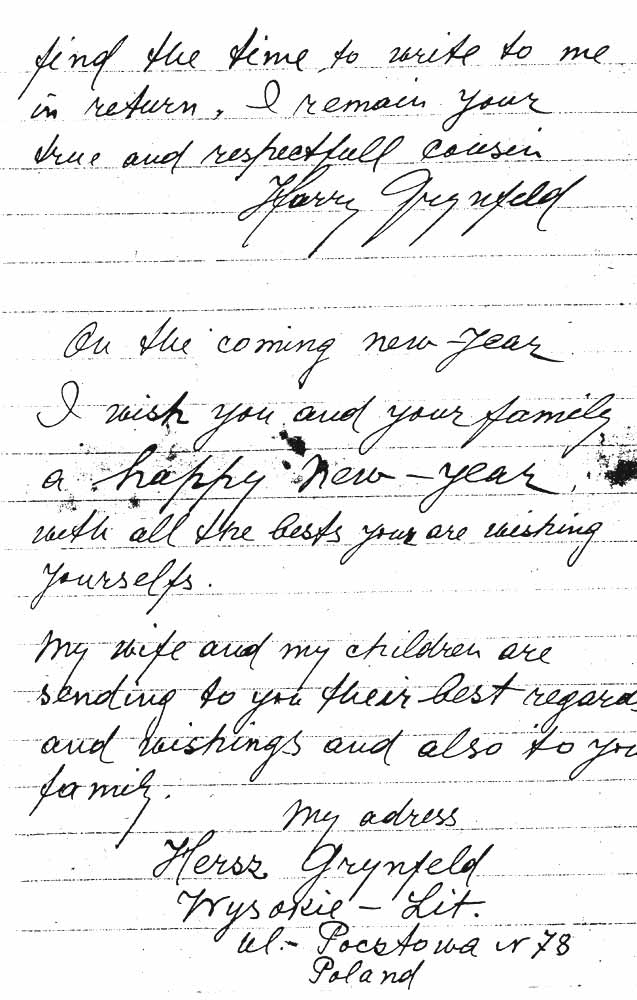 find the time to write to me
in return. I remain your
true and respectfull cousin
Harry Grynfeld
On the coming new-year
I wish you and your family
a happy New-year,
with all the bests your are wishing
yourselfs.
My wife and my children are
sending to you their best regards
and wishings and also to you
family.
My adress
Hersz Grynfeld
Wysokie - Lit.
ul.- Pocztowa N 78
Poland